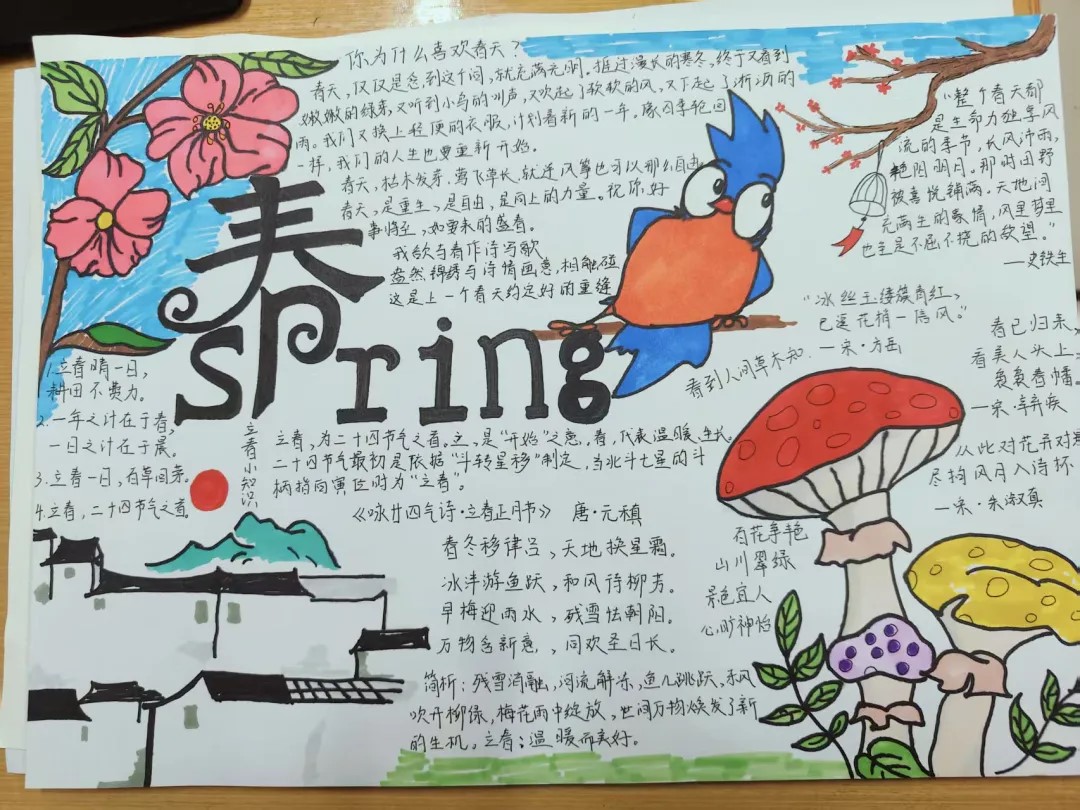 你为什么喜欢春天？
春天，仅仅是念到这个词，就充满光明。挺过漫长的寒冬，终于又看到
嫩嫩的绿意，又听到小鸟的叫声，又吹起了软软的风，又下起了淅沥的
雨。我们又换上轻便的衣服，计划着新的一年。像四季轮回
一样，我们的人生也要重新开始。
春天，枯木发芽，莺飞草长，就连风筝也可以那么自由
春天，是重生，是自由，是向上的力量。祝你，好
事将至，如要来的盛春。
我欲与春作诗写歌
盎然锦绣与诗情画意，相触碰
这是上一个春天约定好的重逢
春
spring
"整个春天都
是生命力独享风
流的季节，长风沛雨，
艳阳明月。那时田野
被喜悦铺满，天地间
充满生的豪情，风里梦里
也全是不屈不挠的欲望。"
——史铁生
"冰丝玉缕簇青红，
已逗花梢一信风。"
—宋·方岳
春到人间草木知
春已归来，
看美人头上，
袅袅春幡。
—宋·辛弃疾
从此对花并对景
尽拘风月入诗怀
—宋·朱淑真
1.立春晴一日，
耕田不费力。
2.一年之计在于春，
一日之计在于晨。
3.立春一日，百草回芽。
4.立春，二十四节气之首。
立春小知识
立春，为二十四节气之首。立，是"开始"之意，春，代表温暖、生长。
二十四节气最初是依据"斗转星移"制定，当北斗七星的斗
柄指向寅位时为"立春"。
《咏廿四气诗·立春正月节》 唐·元稹
春冬移律吕，天地换星霜。
冰泮游鱼跃，和风待柳芳。
早梅迎雨水，残雪怯朝阳。
万物含新意，同欢圣日长。
简析：残雪消融，河流解冻，鱼儿跳跃，东风
吹开柳绿，梅花雨中绽放，世间万物焕发了新
的生机，立春：温暖而美好。
百花争艳
山川翠绿
景色宜人
心旷神怡